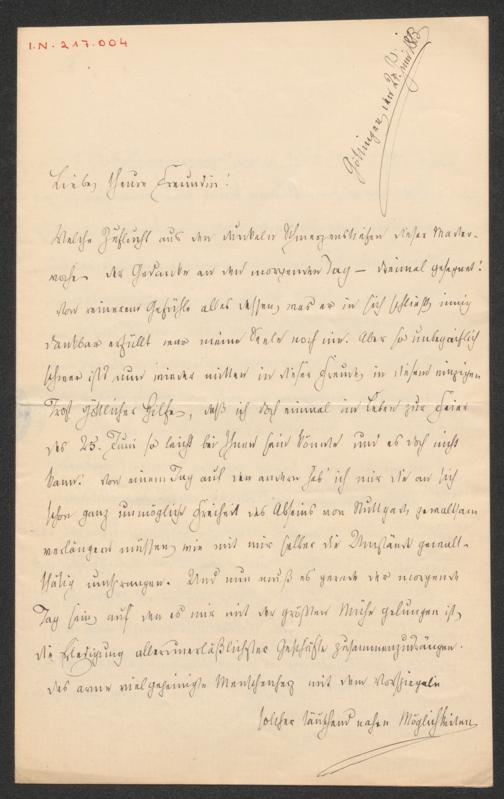 I.N. 217.004
Göttingen, den 24. Juni
Liebe, theure Freundin!
Welche Zuflucht aus den dunkeln Schmerzenstiefen dieser Marter-
woche der Gedanke an den morgenden Tag — dreimal gesegnet!
Von reinerem Gefühle alles dessen, was er in sich schließt, innig
dankbar erfüllt war meine Seele noch nie. Aber so unbegreiflich
schwer ist's nun wieder mitten in dieser Freude, in diesem einzigen
Trost göttlicher Hilfe, daß ich doch einmal im Leben zur Feier
des 25. Juni so leicht bei Ihnen sein könnte und es doch nicht
kann! Von einem Tag auf den andern hab' ich mir die an sich
schon ganz unmögliche Freiheit des Abseins von Stuttgart gewaltsam
verlängern müssen, wie mit mir selber die Umstände gewalt-
thätig umsprangen. Und nun muß es gerade der morgende
Tag sein, auf den es mir mit der größten Mühe gelungen ist,
die Erledigung allerunerläßlichster Geschäfte zusammenzudrängen.
Das arme vielgepeinigte Menschenherz mit dem Vorspiegeln
solcher täuschend nahen Möglichkeiten